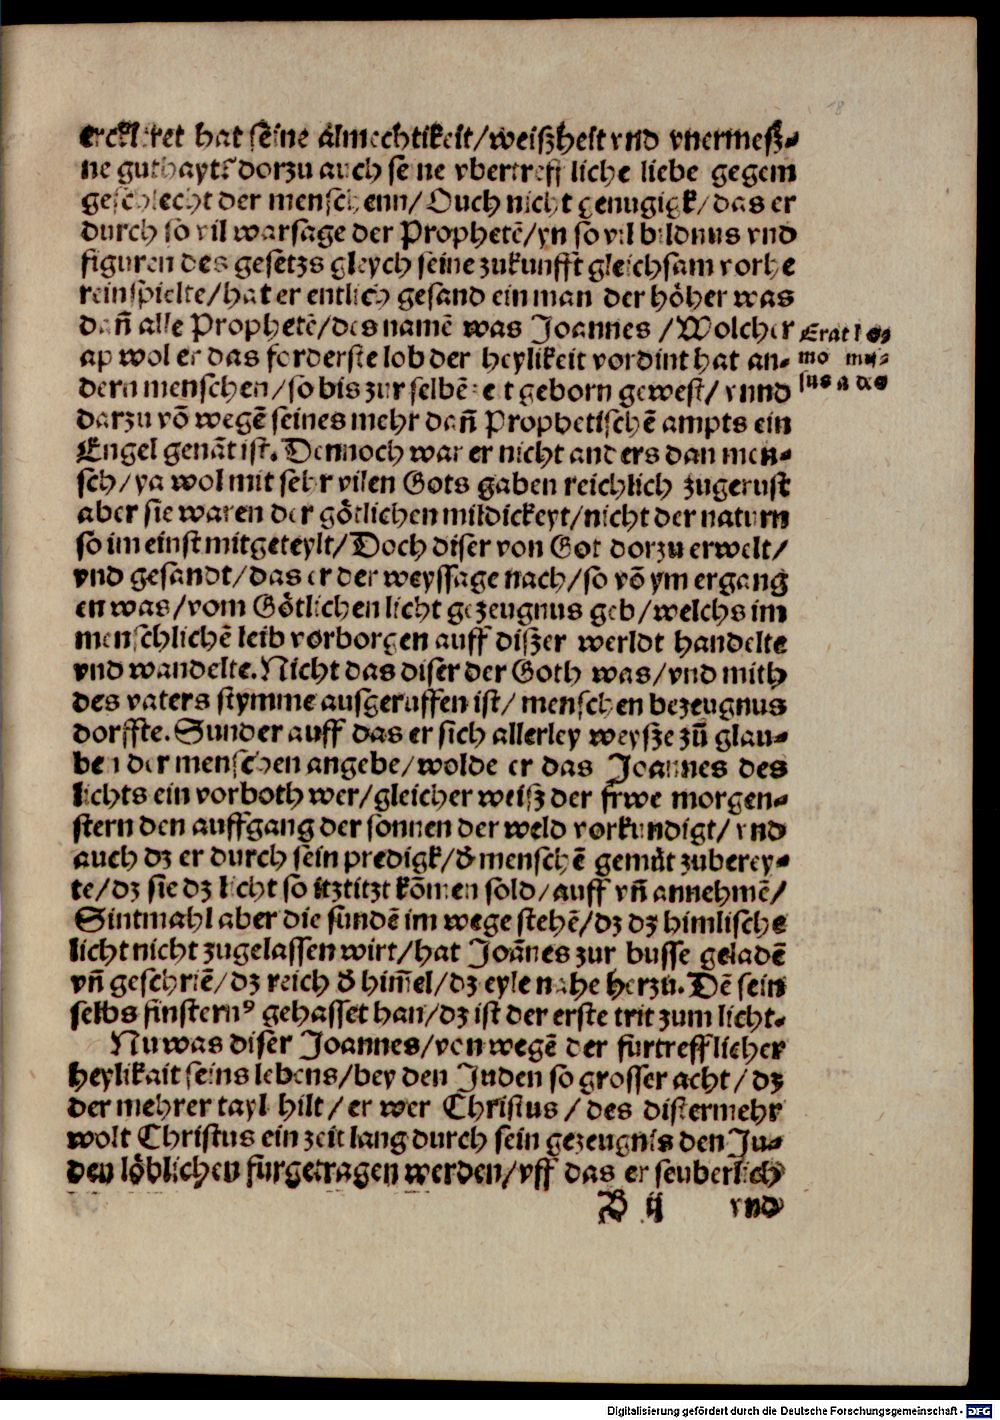 erckleret hat seine almechtikeit/weißheit vnd vnermeß-
ne guthayt dorzu auch seine vbertreffliche liebe gegem
geschlecht der menschenn/Ouch nicht genugigk/das er
durch so vil warsage der Prophetē/yn so vil bildnus vnd
figuren des gesetzs gleych seine zukunfft gleichsam vorhe
reinspielte/hat er entlich gesand ein man der höher was
dañ alle Prophetē/des namē was Joannes/Wolcher
ap wol er das forderste lob der heylikeit vordint hat an-
dern menschen/so bis zur selbē zeit geborn gewest/vnnd
darzu võ wegē seines mehr dañ Prophetischē ampts ein
Engel genāt ist. Dennoch war er nicht anders dan men-
sch/ya wol mit sehr vilen Gots gaben reichlich zugerust
aber sie waren der götlichen mildickeyt/nicht der naturn
so im einst mitgeteylt/Doch diser von Got dorzu erwelt/
vnd gesandt/das er der weyssage nach/so võ ym ergang
en was/vom Götlichen licht gezeugnus geb/welchs im
menschlichē leib vorborgen auff diszer werldt handelte
vnd wandelte. Nicht das diser der Goth was/vnd mith
des vaters stymme ausgeruffen ist/menschen bezeugnus
dorffte. Sunder auff das er sich allerley weysze zů glau-
ben der menschen angebe/wolde er das Joannes des
lichts ein vorboth wer/gleicher weiß der frwe morgen-
stern den auffgang der sonnen der weld vorkundigt/vnd
auch dz er durch sein predigk/d̕ menschē gemüt zuberey-
te/dz sie dz licht so itztitzt kõmen sold/auff vñ annehmē/
Sintmahl aber die sundē im wege stehē/dz dz himlische
licht nicht zugelassen wirt/hat Joānes zur busse geladē
vñ geschriē/dz reich d̕ him̄el/dz eyle nahe herzu. Dē sein
selbs finsternꝰ gehasset han/dz ist der erste trit zum licht.
Nu was diser Joannes/von wegē der furtrefflicher
heylikait seins lebens/bey den Juden so grosser acht/dz
der mehrer tayl hilt/er wer Christus/des distermehr
wolt Christus ein zeit lang durch sein gezeugnis den Ju-
den löblichen furgetragen werden/vff das er seuberlich
B ij vnd
Erat
mo
18
Digitalisierung gefördert durch die Deutsche Forschungsgemeinschaft - DFG